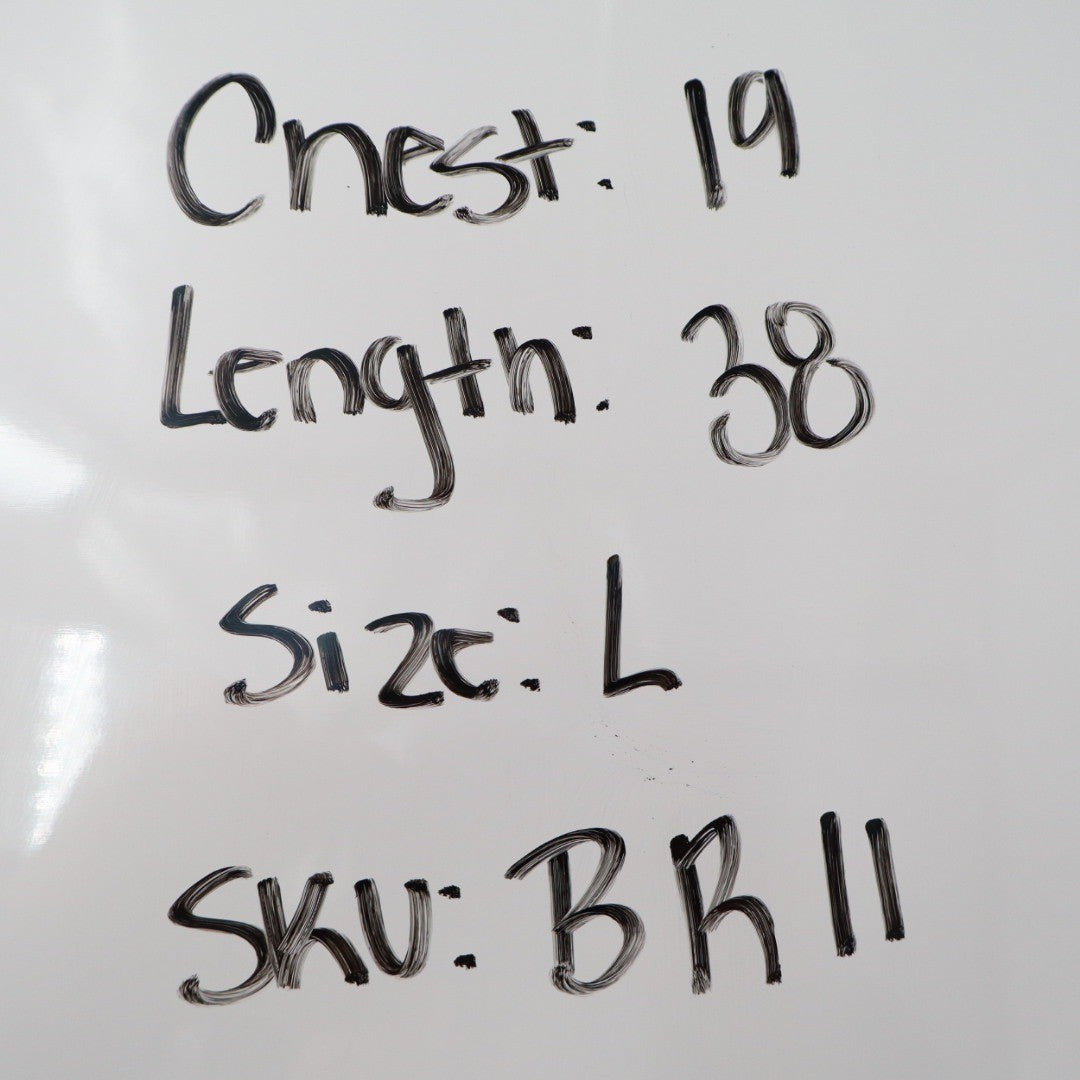 Chest: 19
Length: 38
Size: L
SKU: BR11